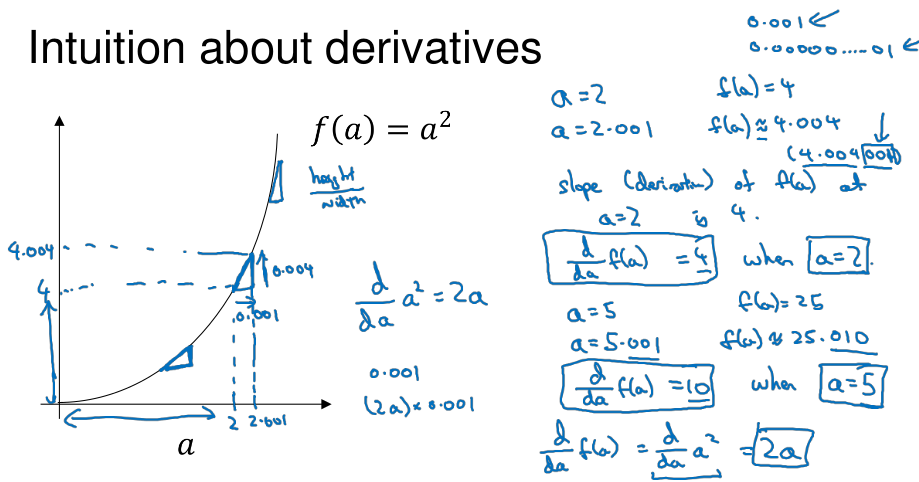 Intuition about derivatives
0.001
0.00000.....01
f(a) = a²
height
width
4.004
4
0.004
0.001
2
2.001
a
d/da a² = 2a
0.001
(2a) × 0.001
a = 2 f(a) = 4
a = 2.001 f(a) ≈ 4.004
(4.004001)
slope (derivative) of f(a) at
a = 2 is 4.
d/da f(a) = 4 when a = 2.
a = 5 f(a) = 25
a = 5.001 f(a) ≈ 25.010
d/da f(a) = 10 when a = 5
d/da f(a) = d/da a² = 2a